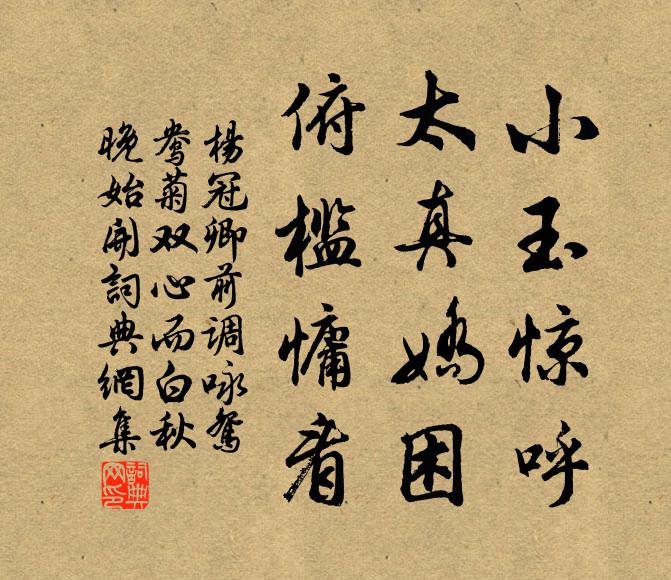 小玉惊呼
太真娇困
俯槛慵看
楊冠卿前调咏鸳
鸯菊双心而白秋
晚始開詞典網集
詞典網印